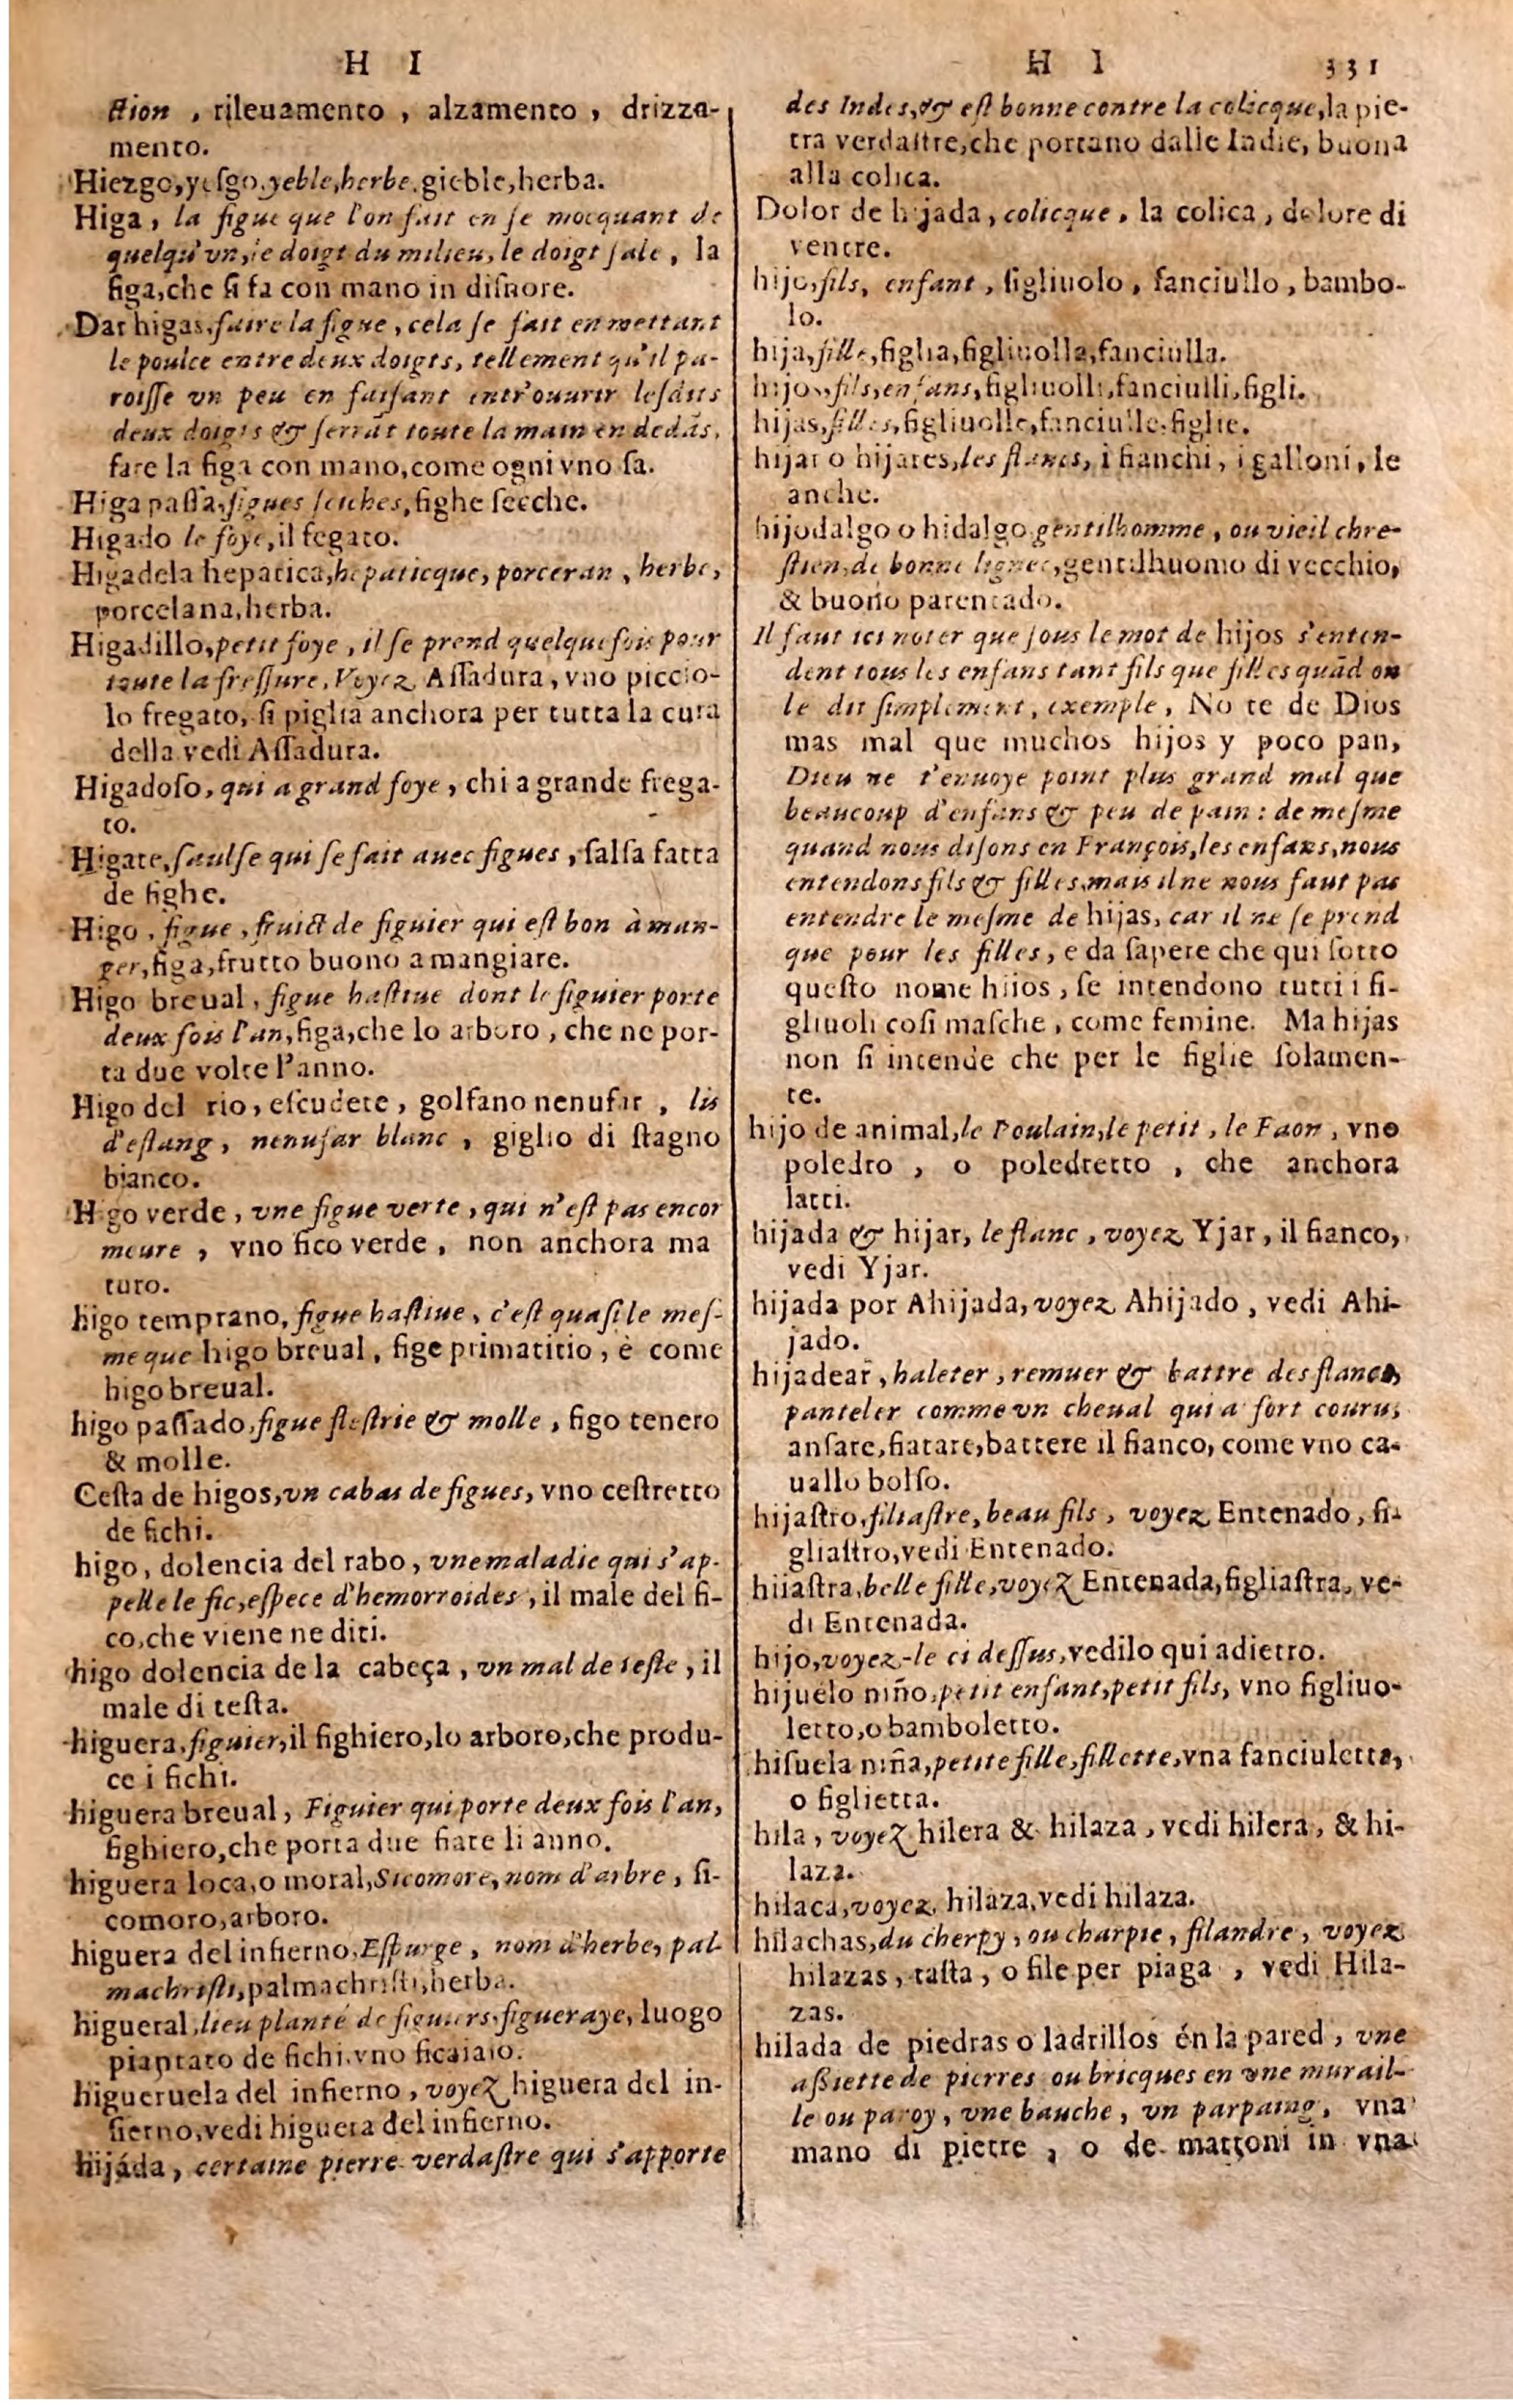 H I
ction, rileuamento, alzamento, drizza-
mento.
Hiezgo, yesgo, yeble, herbe, gieble, herba.
Higa, la figue que l'on fait en se mocquant de
quelqu'vn, le doigt du milieu, le doigt sale, la
figa, che si fa con mano in disnore.
Dar higas, faire la figue, cela se fait en mettant
le poulce entre deux doigts, tellement qu'il pa-
roisse vn peu en faisant entr'ouurir lesdits
deux doigts & serrāt toute la main en dedās,
fare la figa con mano, come ogni vno sa.
Higa passa, figues seiches, fighe secche.
Higado le foye, il fegato.
Higadela hepatica, hepaticque, porceran, herbe,
porcelana, herba.
Higadillo, petit foye, il se prend quelquefois pour
toute la fressure, Voyez Assadura, vno piccio-
lo fregato, si piglia anchora per tutta la cura
della vedi Assadura.
Higadoso, qui a grand foye, chi a grande frega-
to.
Higate, saulse qui se fait auec figues, salsa fatta
de fighe.
Higo, figue, fruict de figuier qui est bon à man-
ger, figa, frutto buono a mangiare.
Higo breual, figue hastiue dont le figuier porte
deux fois l'an, figa, che lo arboro, che ne por-
ta due volte l'anno.
Higo del rio, escudete, golfano nenufar, lis
d'estang, nenufar blanc, giglio di stagno
bianco.
Higo verde, vne figue verte, qui n'est pas encor
meure, vno fico verde, non anchora ma
turo.
higo temprano, figue hastiue, c'est quasi le mes-
me que higo breual, fige primatitio, è come
higo breual.
higo passado, figue flestrie & molle, figo tenero
& molle.
Cesta de higos, vn cabas de figues, vno cestretto
de fichi.
higo, dolencia del rabo, vne maladie qui s'ap-
pelle le fic, espece d'hemorroides, il male del fi-
co, che viene ne diti.
higo dolencia de la cabeça, vn mal de teste, il
male di testa.
higuera, figuier, il fighiero, lo arboro, che produ-
ce i fichi.
higuera breual, Figuier qui porte deux fois l'an,
fighiero, che porta due fiate li anno.
higuera loca, o moral, Sicomore, nom d'arbre, si-
comoro, arboro.
higuera del infierno, Espurge, nom d'herbe, pal-
machristi, palmachristi, herba.
higueral, lieu planté de figuiers, figueraye, luogo
piantato de fichi, vno ficaiaio.
higueruela del infierno, voyez higuera del in-
fierno, vedi higuera del infierno.
hijáda, certaine pierre verdastre qui s'apporte
H I 331
des Indes, & est bonne contre la colicque, la pie-
tra verdastre, che portano dalle Indie, buona
alla colica.
Dolor de hijada, colicque, la colica, dolore di
ventre.
hijo, fils, enfant, figliuolo, fanciullo, bambo-
lo.
hija, fille, figlia, figliuolla, fanciulla.
hijos, fils, enfans, figliuolli, fanciulli, figli.
hijas, filles, figliuolle, fanciulle, figlie.
hijar o hijares, les flancs, i fianchi, i galloni, le
anche.
hijodalgo o hidalgo, gentilhomme, ou vieil chre-
stien, de bonne lignee, gentilhuomo di vecchio,
& buono parentado.
Il faut ici noter que sous le mot de hijos s'enten-
dent tous les enfans tant fils que filles quād on
le dit simplement, exemple, No te de Dios
mas mal que muchos hijos y poco pan,
Dieu ne t'enuoye point plus grand mal que
beaucoup d'enfans & peu de pain: de mesme
quand nous disons en François, les enfans, nous
entendons fils & filles, mais il ne nous faut pas
entendre le mesme de hijas, car il ne se prend
que pour les filles, e da sapere che qui sotto
questo nome hiios, se intendono tutti i fi-
gliuoli cosi masche, come femine. Ma hijas
non si intende che per le figlie solamen-
te.
hijo de animal, le Poulain, le petit, le Faon, vno
poledro, o poledretto, che anchora
latti.
hijada & hijar, le flanc, voyez Yjar, il fianco,
vedi Yjar.
hijada por Ahijada, voyez Ahijado, vedi Ahi-
jado.
hijadear, haleter, remuer & battre des flancs,
panteler comme vn cheual qui a fort couru,
ansare, fiatare, battere il fianco, come vno ca-
uallo bolso.
hijastro, filiastre, beau fils, voyez Entenado, fi-
gliastro, vedi Entenado.
hijastra, belle fille, voyez Entenada, figliastra, ve-
di Entenada.
hijo, voyez-le ci dessus, vedilo qui adietro.
hijuelo niño, petit enfant, petit fils, vno figliuo-
letto, o bamboletto.
hisuela niña, petite fille, fillette, vna fanciuletta,
o figlietta.
hila, voyez hilera & hilaza, vedi hilera, & hi-
laza.
hilaca, voyez hilaza, vedi hilaza.
hilachas, du cherpy, ou charpie, filandre, voyez
hilazas, tasta, o file per piaga, vedi Hila-
zas.
hilada de piedras o ladrillos én la pared, vne
assiette de pierres ou bricques en vne murail-
le ou paroy, vne bauche, vn parpaing, vna
mano di pietre, o de mattoni in vna